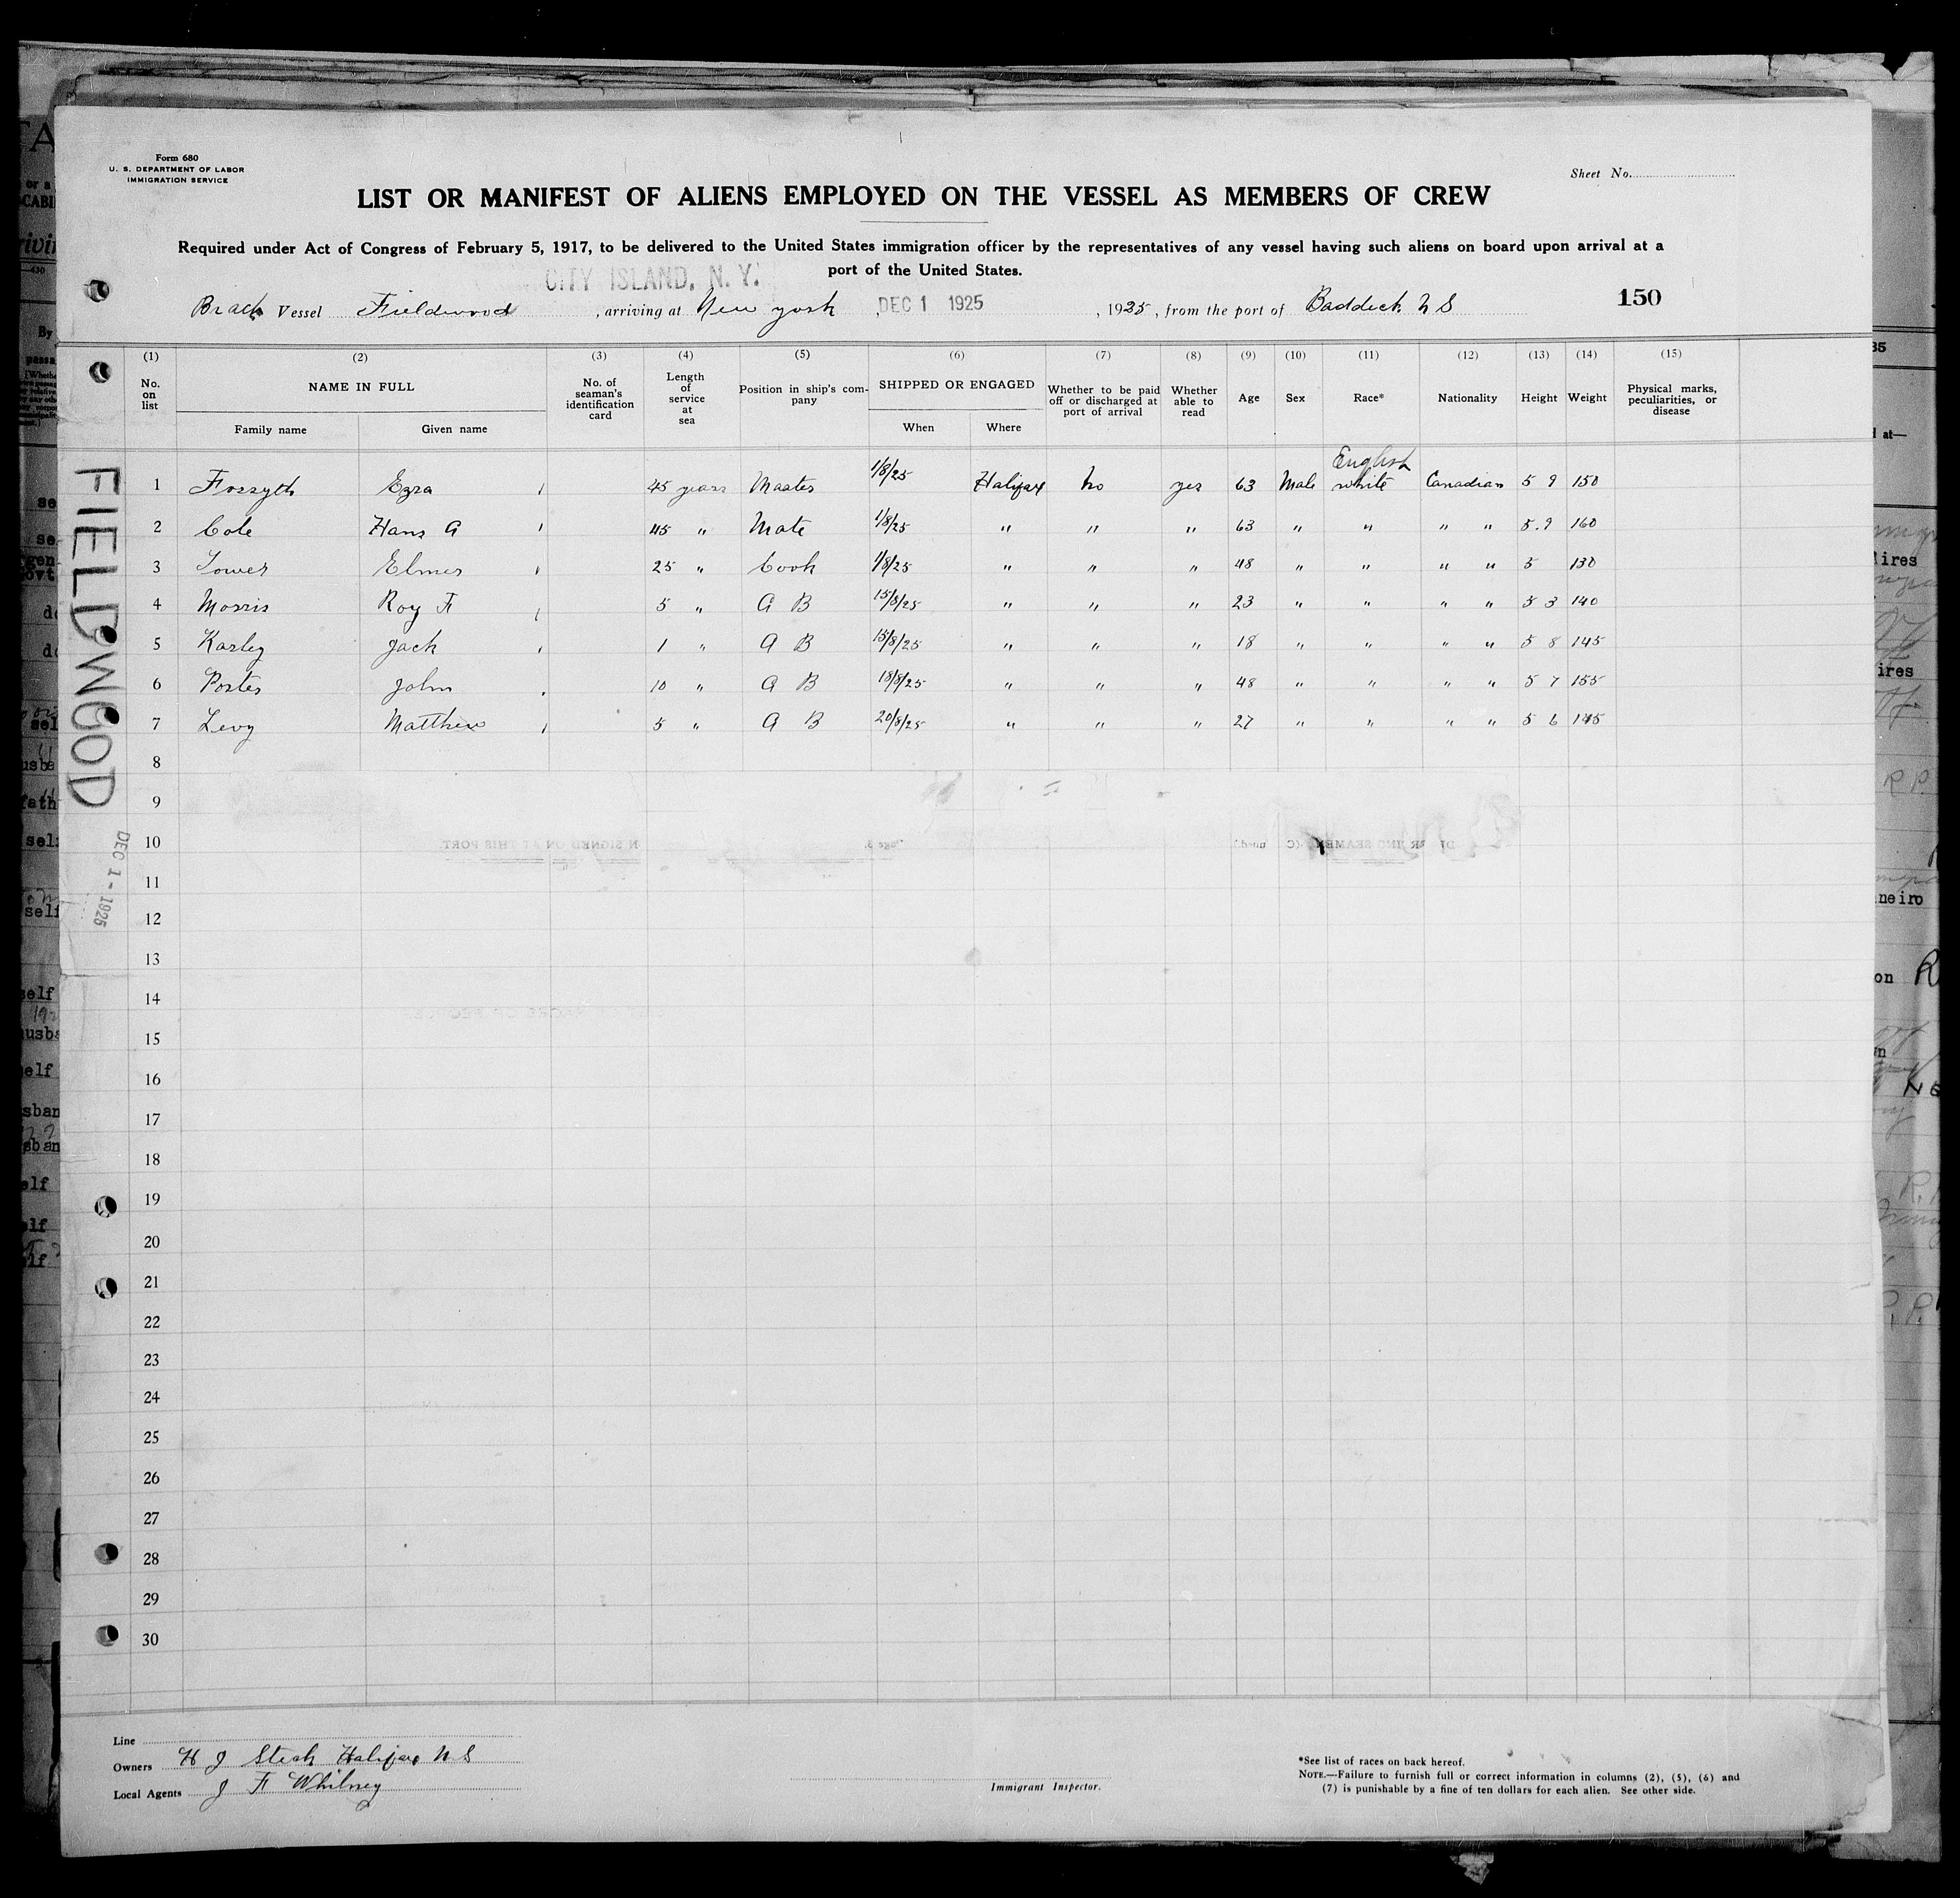 Form 680
U. S. DEPARTMENT OF LABOR
IMMIGRATION SERVICE
Sheet No.
LIST OR MANIFEST OF ALIENS EMPLOYED ON THE VESSEL AS MEMBERS OF CREW
Required under Act of Congress of February 5, 1917, to be delivered to the United States immigration officer by the representatives of any vessel having such aliens on board upon arrival at a
port of the United States.
CITY ISLAND, N. Y.
Vessel Fieldwood, arriving at New york, DEC 1 1925, 1925, from the port of Baddeck N S 150
(1) (2) (3) (4) (5) (6) (7) (8) (9) (10) (11) (12) (13) (14) (15)
No. on list NAME IN FULL Family name Given name No. of seaman's identification card Length of service at sea Position in ship's company SHIPPED OR ENGAGED When Where Whether to be paid off or discharged at port of arrival Whether able to read Age Sex Race* Nationality Height Weight Physical marks, peculiarities, or disease
1 Forsyth Ezra 45 years Master 1/8/25 Halifax No yes 63 Male English white Canadian 5 9 150
2 Cole Hans A 45 " Mate 1/8/25 " " " 63 " " " " 5.9 160
3 Tower Elmer 25 " Cook 1/8/25 " " " 48 " " " " 5 130
4 Morris Roy F 5 " A B 15/8/25 " " " 23 " " " " 5 3 140
5 Karley Jack 1 " A B 15/8/25 " " " 18 " " " " 5 8 145
6 Porter John 10 " A B 18/8/25 " " " 48 " " " " 5 7 155
7 Levy Matthew 5 " A B 20/8/25 " " " 27 " " " " 5 6 145
8
9
10
11
12
13
14
15
16
17
18
19
20
21
22
23
24
25
26
27
28
29
30
FIELDWOOD
DEC 1 - 1925
Line
Owners H J Halifax N S
Local Agents J F Whitney
Immigrant Inspector.
*See list of races on back hereof.
NOTE.—Failure to furnish full or correct information in columns (2), (5), (6) and
(7) is punishable by a fine of ten dollars for each alien. See other side.